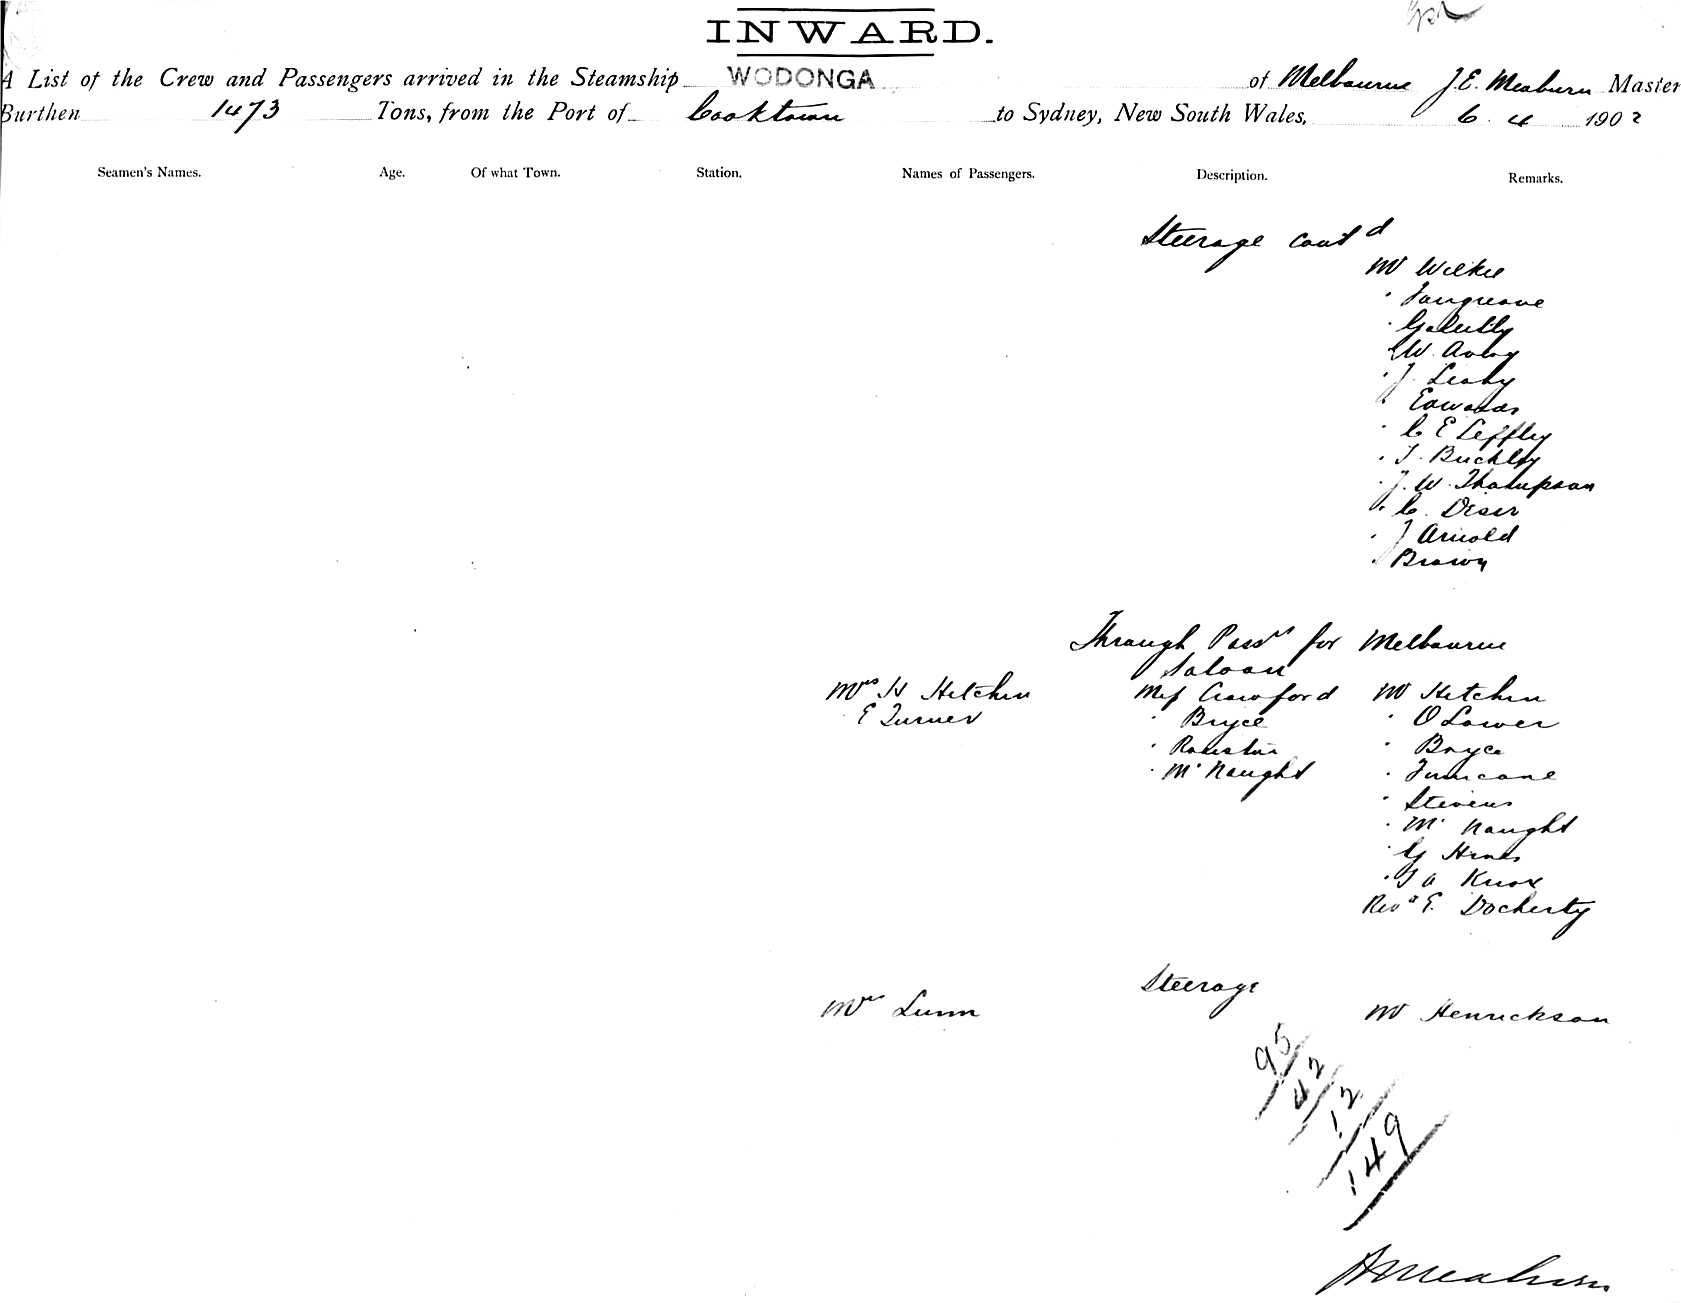 INWARD.
A List of the Crew and Passengers arrived in the Steamship WODONGA of Melbourne J.E. Meaburn Master
Burthen 1473 Tons, from the Port of Cooktown to Sydney, New South Wales, 6. 4 1902
Seamen's Names. Age. Of what Town. Station. Names of Passengers. Description. Remarks.
Steerage contd
Mr Wilkie
"
"
W. Avery
" J. Leahy
" Edwards
" C E Leffley
" T. Buckley
" J. W. Thompson
" C.
" J Arnold
" Brown
Through Passrs for Melbourne
Saloon
Mrs H Hitchin Miss Crawford Mr Hitchin
E Turner " Bryce " O Lower
" " Bryce
" McNaught "
" Stevens
" Mc Naught
" G Hines
" Knox
Revd E. Docherty
Steerage
Mrs Lunn Mr Henrickson
95
42
12
149
Meaburn